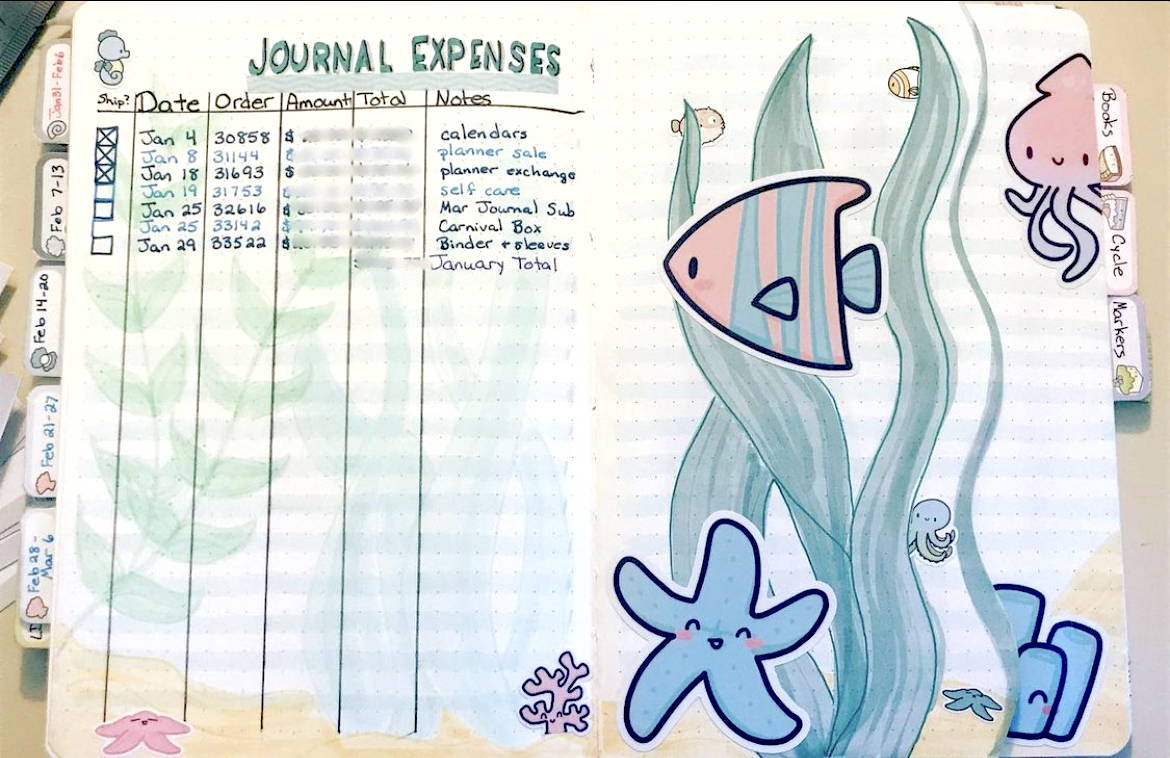 JOURNAL EXPENSES
Ship? Date Order Amount Total Notes
Jan 4 30858 $ calendars
Jan 8 31144 $ planner sale
Jan 18 31693 $ planner exchange
Jan 19 31753 self care
Jan 25 32616 $ Mar Journal Sub
Jan 25 33142 $ Carnival Box
Jan 29 33522 $ Binder + sleeves
January Total
Jan31-Feb6
Feb 7-13
Feb 14-20
Feb 21-27
Feb 28-
Mar 6
Books
Cycle
Markers